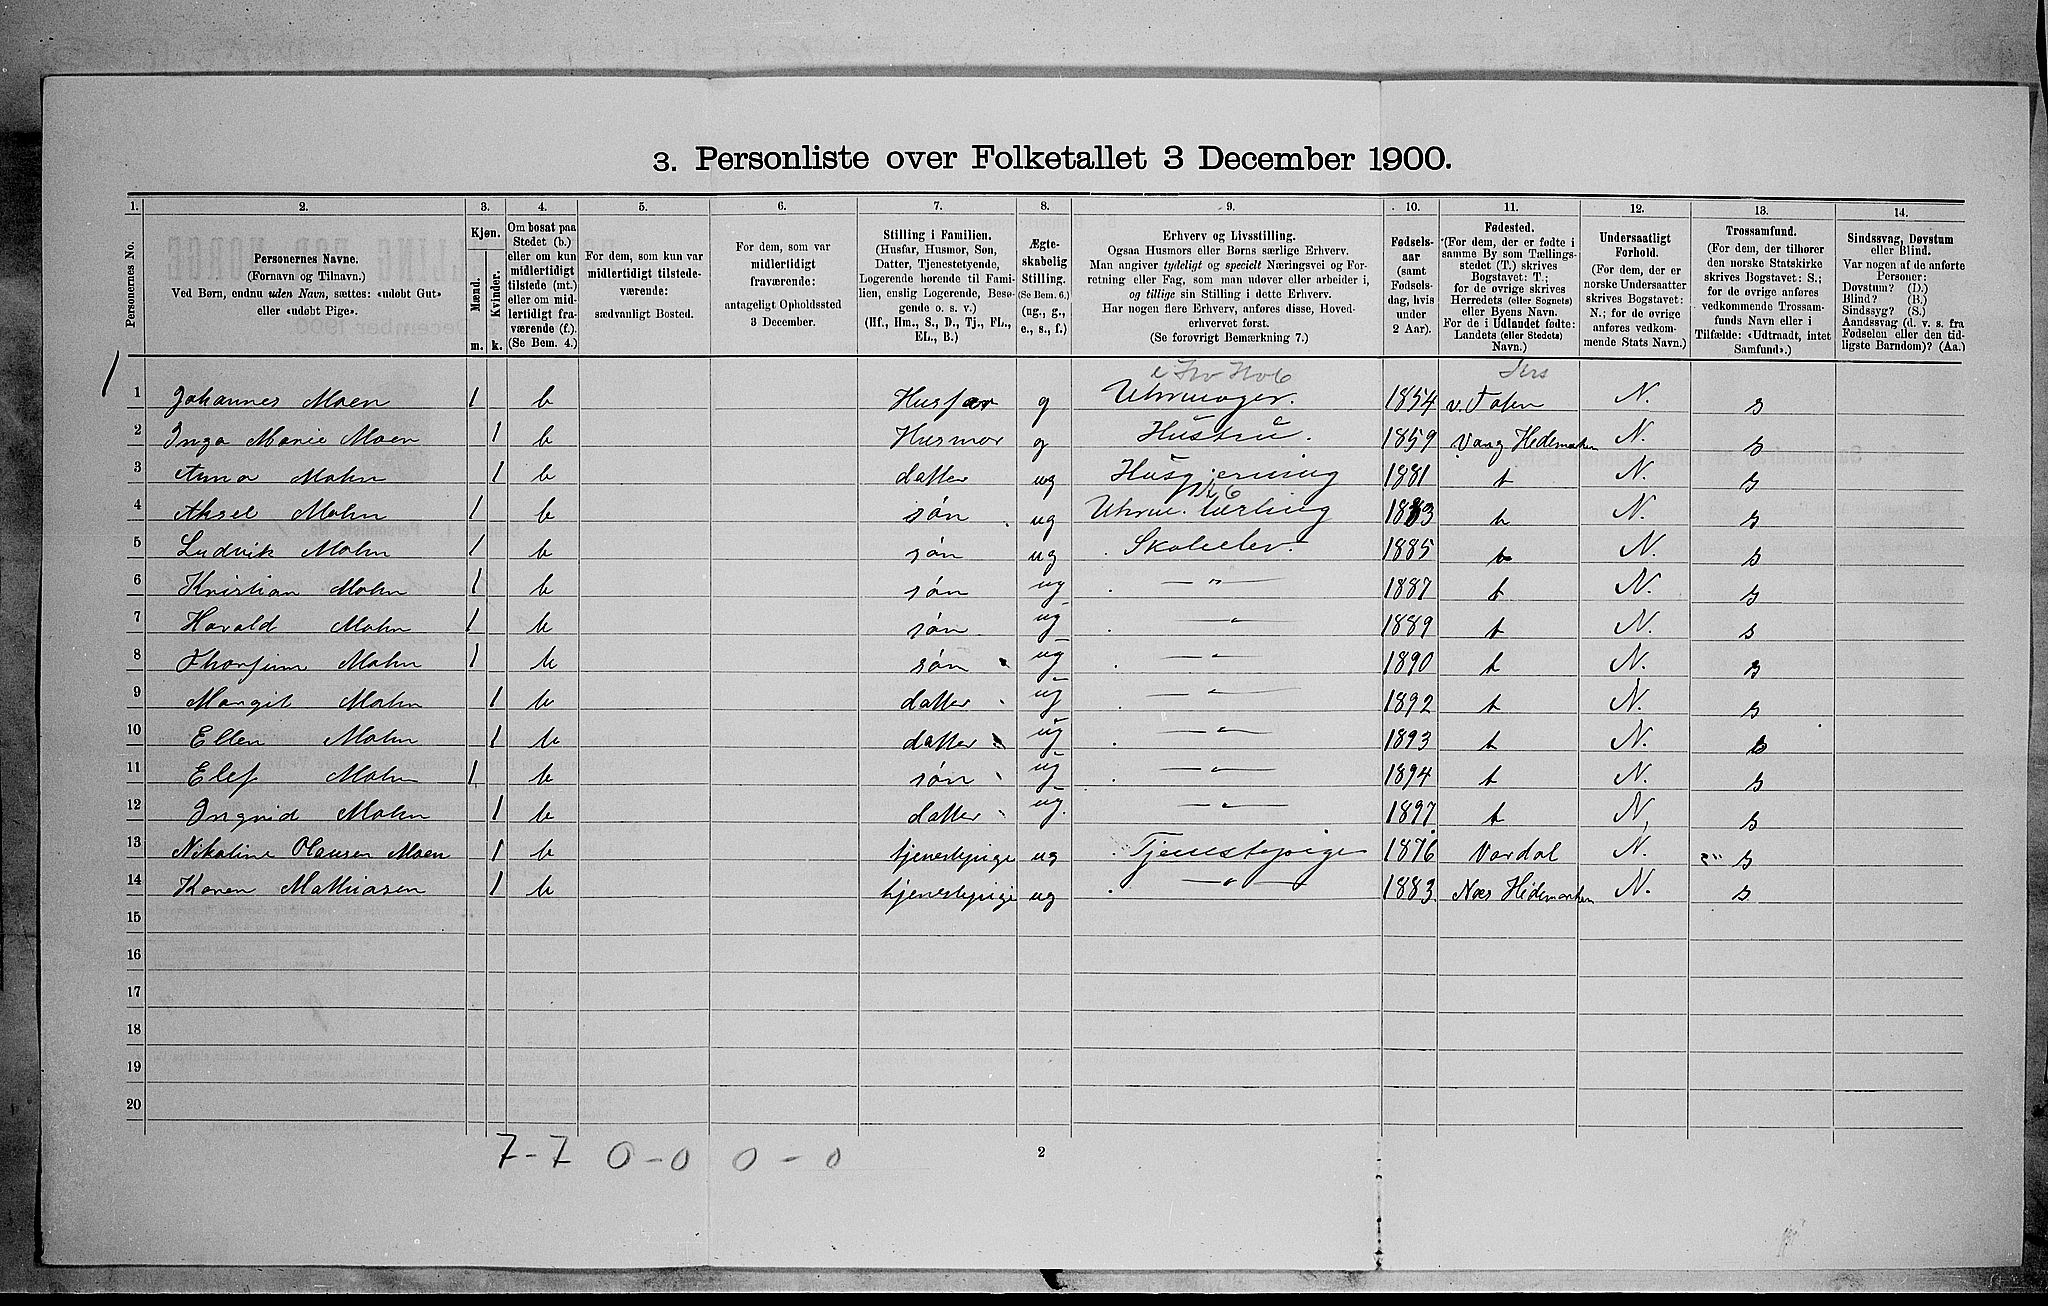 3. Personliste over Folketallet 3 December 1900.
1. 2. 3. 4. 5. 6. 7. 8. 9. 10. 11. 12. 13. 14.
Personernes No.
Personernes Navne.
(Fornavn og Tilnavn.)
Ved Børn, endnu uden Navn, sættes: «udøbt Gut»
eller «udøbt Pige».
Kjøn.
Mænd.
Kvinder.
m. k.
Om bosat paa
Stedet (b.)
eller om kun
midlertidigt
tilstede (mt.)
eller om mid-
lertidigt fra-
værende (f.).
(Se Bem. 4.)
For dem, som kun var
midlertidigt tilstede-
værende:
sædvanligt Bosted.
For dem, som var
midlertidigt
fraværende:
antageligt Opholdssted
3 December.
Stilling i Familien.
(Husfar, Husmor, Søn,
Datter, Tjenestetyende,
Logerende hørende til Fami-
lien, enslig Logerende, Besø-
gende o. s. v.)
(Hf., Hm., S., D., Tj., FL.,
EL., B.)
Ægte-
skabelig
Stilling.
(Se Bem. 6.)
(ug., g.,
e., s., f.)
Erhverv og Livsstilling.
Ogsaa Husmors eller Børns særlige Erhverv.
Man angiver tydeligt og specielt Næringsvei og For-
retning eller Fag, som man udøver eller arbeider i,
og tillige sin Stilling i dette Erhverv.
Har nogen flere Erhverv, anføres disse, Hoved-
erhvervet først.
(Se forøvrigt Bemærkning 7.)
Fødsels-
aar
(samt
Fødsels-
dag, hvis
under
2 Aar).
Fødested.
(For dem, der er fødte i
samme By som Tællings-
stedet (T.) skrives
Bogstavet: T.;
for de øvrige skrives
Herredets (eller Sognets)
eller Byens Navn.
For de i Udlandet fødte:
Landets (eller Stedets)
Navn.)
Undersaatligt
Forhold.
(For dem, der er
norske Undersaatter
skrives Bogstavet:
N.; for de øvrige
anføres vedkom-
mende Stats Navn.)
Trossamfund.
(For dem, der tilhører
den norske Statskirke
skrives Bogstavet: S.;
for de øvrige anføres
vedkommende Trossam-
funds Navn eller i
Tilfælde: «Udtraadt, intet
Samfund».)
Sindssvag, Døvstum
eller Blind.
Var nogen af de anførte
Personer:
Døvstum? (D.)
Blind? (B.)
Sindssyg? (S.)
Aandssvag (d. v. s. fra
Fødselen eller den tid-
ligste Barndom)? (Aa.)
1
1 Johannes Moen 1 b Husfar g Uhrmager. 1854 v. Toten N. s
2 Inga Marie Moen 1 b Husmor g Hustru. 1859 Vang Hedemarken N. s
3 Anna Mohn 1 b datter ug Husgjerning 1881 t N. s
4 Aksel Mohn 1 b søn ug Uhrm. Lærling 1883 t N. s
5 Ludvik Mohn 1 b søn ug Skoleelev. 1885 t N. s
6 Kristian Mohn 1 b søn ug — " — 1887 t N. s
7 Harald Mohn 1 b søn ug — " — 1889 t N. s
8 Thorfinn Mohn 1 b søn ug — " — 1890 t N. s
9 Margit Mohn 1 b datter ug — " — 1892 t N. s
10 Ellen Mohn 1 b datter ug — " — 1893 t N. s
11 Elef Mohn 1 b søn ug — " — 1894 t N. s
12 Ingrid Mohn 1 b datter ug — " — 1897 t N. s
13 Nikoline Olausen Moen 1 b tjenestepige ug Tjenestepige 1876 Vardal N. s
14 Karen Mathiasen 1 b tjenestepige ug — " — 1883 Næs Hedemarken N. s
15
16
17
18
19
20
7-7 0-0 0-0
2